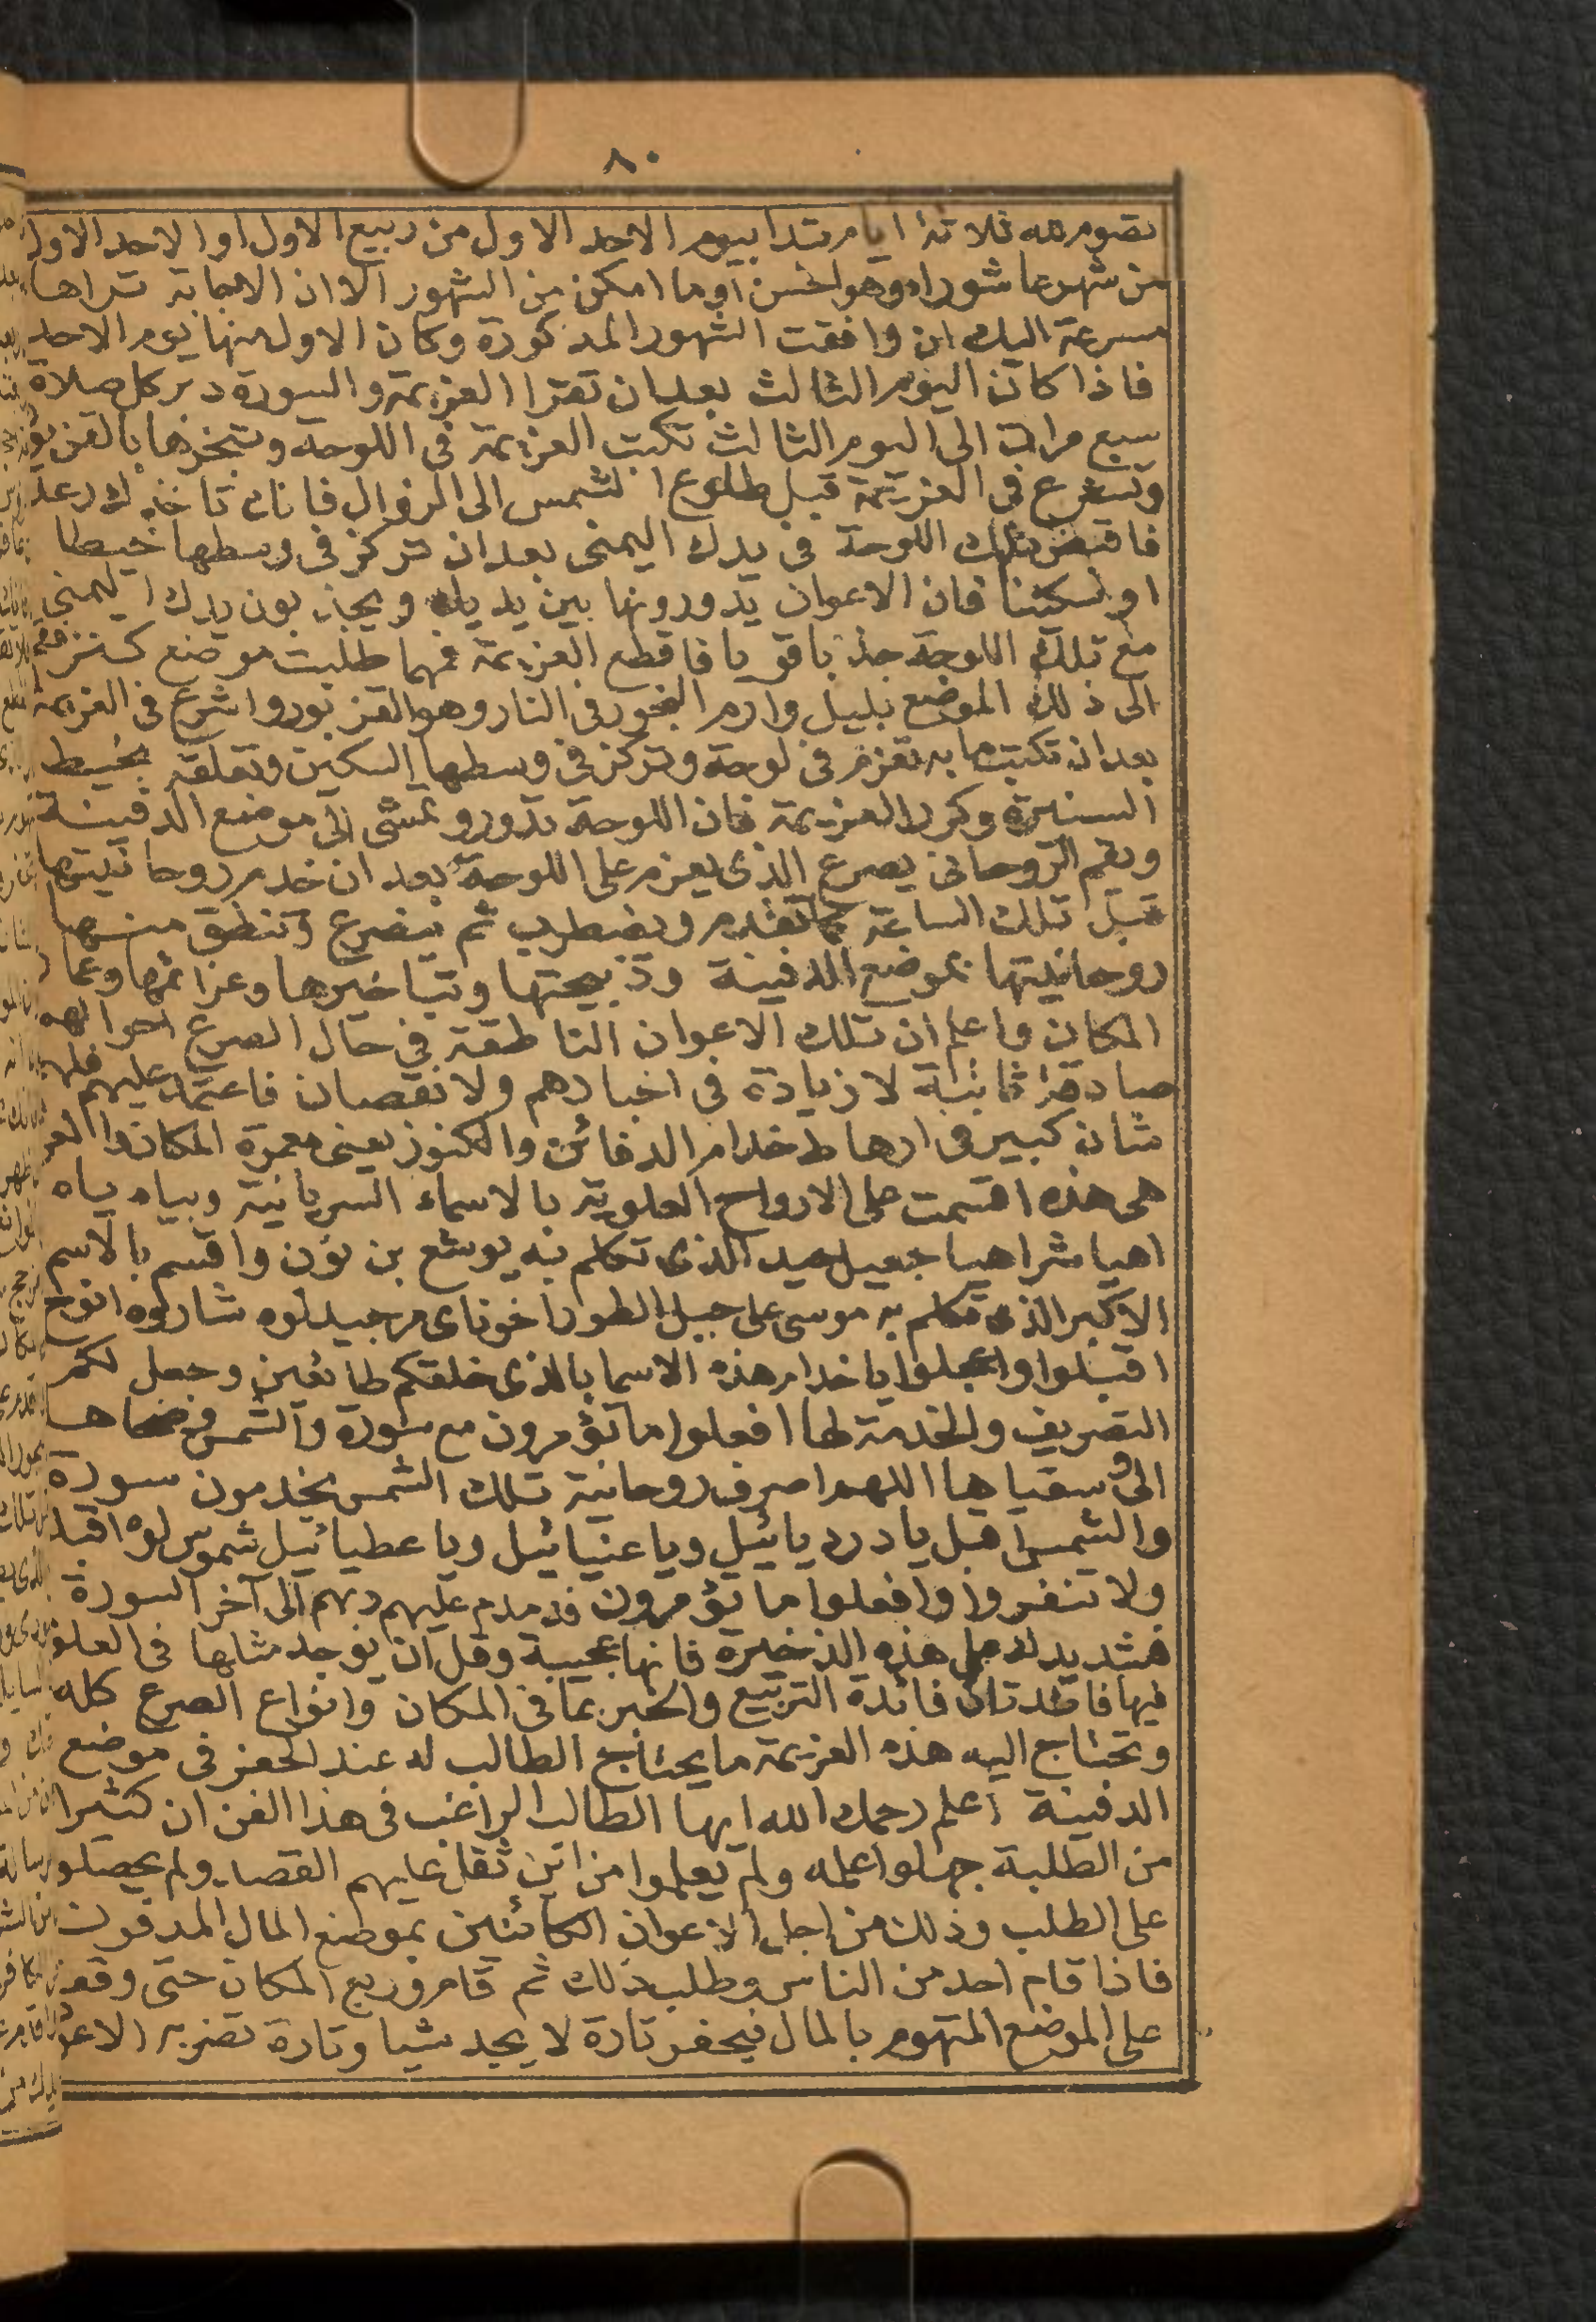 ٨٠
تصوم لله ثلاثة ايام تبتدا بيوم الاحد الاول من ربيع الاول او الاحد الاول
من شهر عاشوراء وهو احسن او ما امكن من الشهور الا ان الاجابة تراها
مسرعة اليك ان وافقت الشهور المذكورة وكان الاول منها يوم الاحد
فاذا كان اليوم الثالث بعد ان تقرا العزيمة والسورة دبر كل صلاة
سبع مرات الى اليوم الثالث تكتب العزيمة فى اللوحة وتبخرها
وتشرع فى العزيمة قبل طلوع الشمس الى الزوال فانك تاخذك رعد
فاقبض تلك اللوحة فى يدك اليمنى بعد ان تركز فى وسطها خيطا
او سكينا فان الاعوان يدورونها بين يديك ويجذبون يدك اليمنى
مع تلك اللوحة جذبا قويا فاقطع العزيمة فمهما طلبت موضع كنز فقم
الى ذلك الموضع بليل وارم البخور فى النار وهو القزبور واشرع فى العزيمة
بعد ان تكتب ما به تعزم فى لوحة وتركز فى وسطها السكين وتعلقه بخيط
وكرر العزيمة فان اللوحة تدور وتمشى الى موضع الدفينة
ويقم الروحانى يصرع الذى يعزم على اللوحة بعد ان خدم روحانيتها
قبل تلك الساعة كما تقدم ويضطرب ثم ينصرع وتنطق منه
روحانيتها بموضع الدفينة وذبيحتها وتباخيرها وعزائمها وعمار
المكان واعلم ان تلك الاعوان الناطقة فى حال الصرع احوالهم
صادقة ثابتة لا زيادة فى اخبارهم ولا نقصان فاعتمد عليهم فلهم
شان كبير فى ارهاط خدام الدفائن والكنوز يعنى معمرة المكان والعز
هى هذه اقسمت على الارواح العلوية بالاسماء السريانية وبياه ياه
اهيا شراهيا الذى تكلم به يوشع بن نون واقسم بالاسم
الاكبر الذى تكلم به موسى على جبل الطور
اقبلوا واعجلوا يا خدام هذه الاسما بالذى خلقكم طائعين وجعل لكم
التصريف والخدمة لها افعلوا ما تؤمرون مع سورة والشمس وضحاها
الى وسقياها اللهم اصرف روحانية تلك الشمس يخدمون سورة
والشمس اهبل يا دردیائیل ويا عنيائيل ويا عطيائيل اقبلوا
ولا تنفروا وافعلوا ما تؤمرون فدمدم عليهم ربهم الى آخر السورة
فشد يدك على هذه الذخيرة فانها عجيبة وقل ان يوجد مثلها فى العلوم
فيها فائدتان فائدة التربيع والخبر بما فى المكان وانواع الصرع كله
وتحتاج اليه هذه العزيمة ما يحتاج الطالب له عند الحفر فى موضع
الدفينة اعلم رحمك الله ايها الطالب الراغب فى هذا الفن ان كثيرا
من الطلبة جهلوا عمله ولم يعلموا من اين ثقل عليهم القصد ولم يحصلوا
على الطلب وذلك من اجل الاعوان الكائنين بموضع المال المدفون
فاذا قام احد من الناس وطلب ذلك ثم قام وربع المكان حتى وقع
على الموضع المتهوم بالمال فيحفر تارة لا يجد شيا وتارة تضربه الاعو